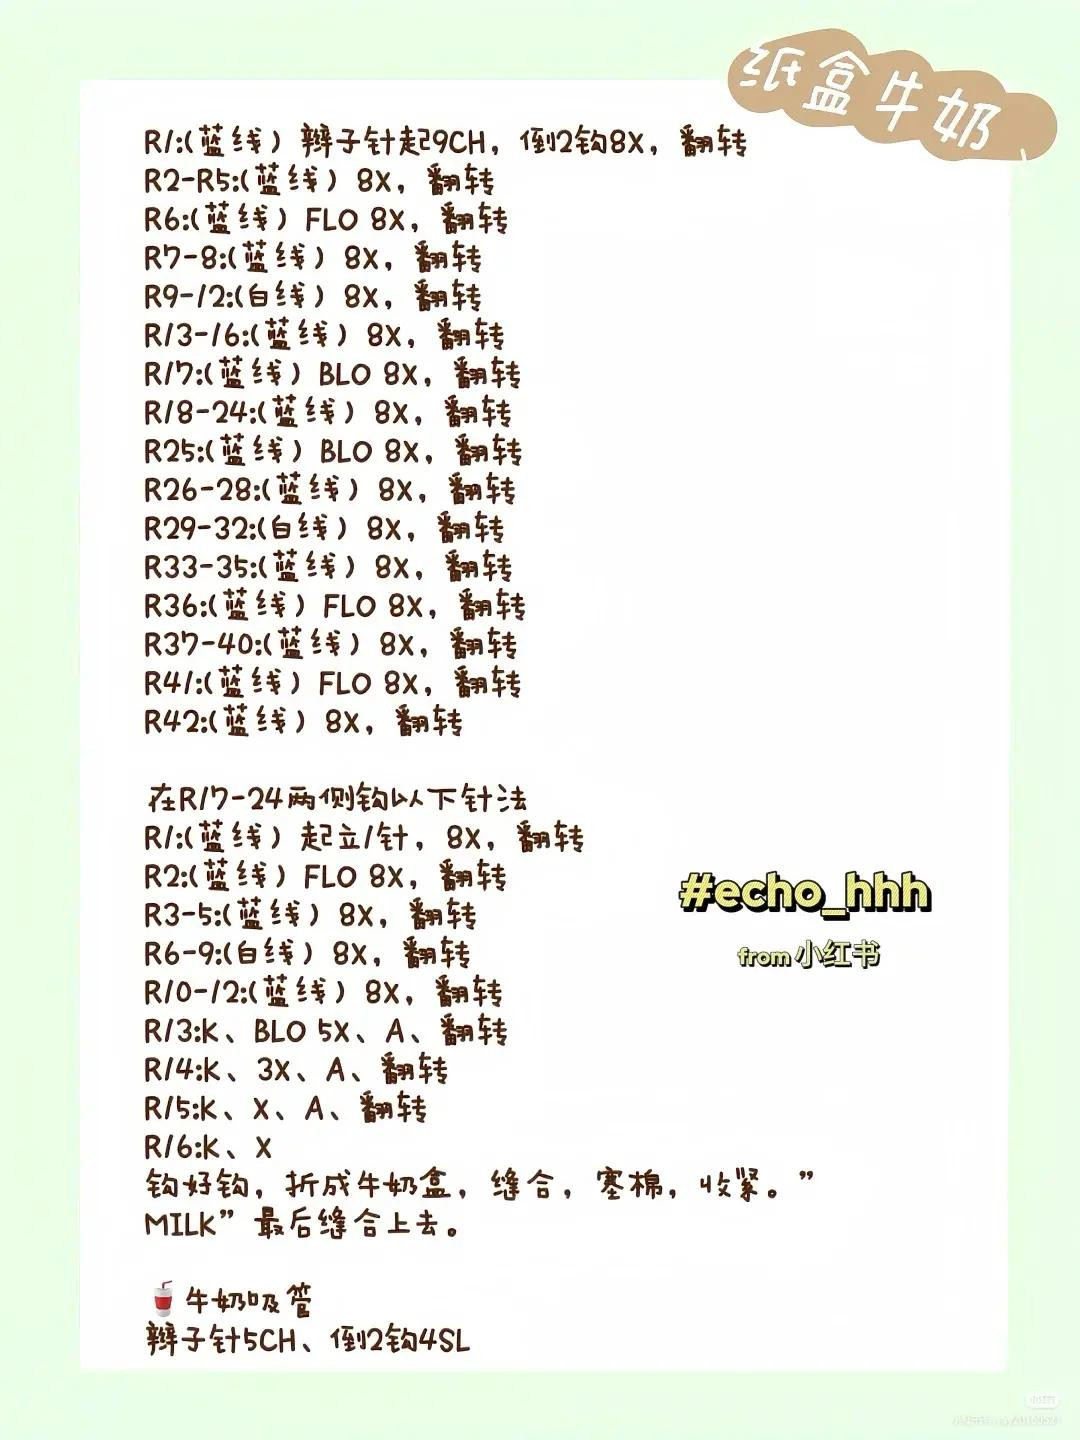 纸盒牛奶
R1:(蓝线) 辫子针起9CH，倒2钩8X，翻转
R2-R5:(蓝线) 8X，翻转
R6:(蓝线) FLO 8X，翻转
R7-8:(蓝线) 8X，翻转
R9-12:(白线) 8X，翻转
R13-16:(蓝线) 8X，翻转
R17:(蓝线) BLO 8X，翻转
R18-24:(蓝线) 8X，翻转
R25:(蓝线) BLO 8X，翻转
R26-28:(蓝线) 8X，翻转
R29-32:(白线) 8X，翻转
R33-35:(蓝线) 8X，翻转
R36:(蓝线) FLO 8X，翻转
R37-40:(蓝线) 8X，翻转
R41:(蓝线) FLO 8X，翻转
R42:(蓝线) 8X，翻转
在R17-24两侧钩以下针法
R1:(蓝线) 起立1针，8X，翻转
R2:(蓝线) FLO 8X，翻转
R3-5:(蓝线) 8X，翻转
R6-9:(白线) 8X，翻转
R10-12:(蓝线) 8X，翻转
R13:K、BLO 5X、A、翻转
R14:K、3X、A、翻转
R15:K、X、A、翻转
R16:K、X
钩好钩，折成牛奶盒，缝合，塞棉，收紧。”
MILK”最后缝合上去。
#echo_hhh
from 小红书
牛奶吸管
辫子针5CH、倒2钩4SL